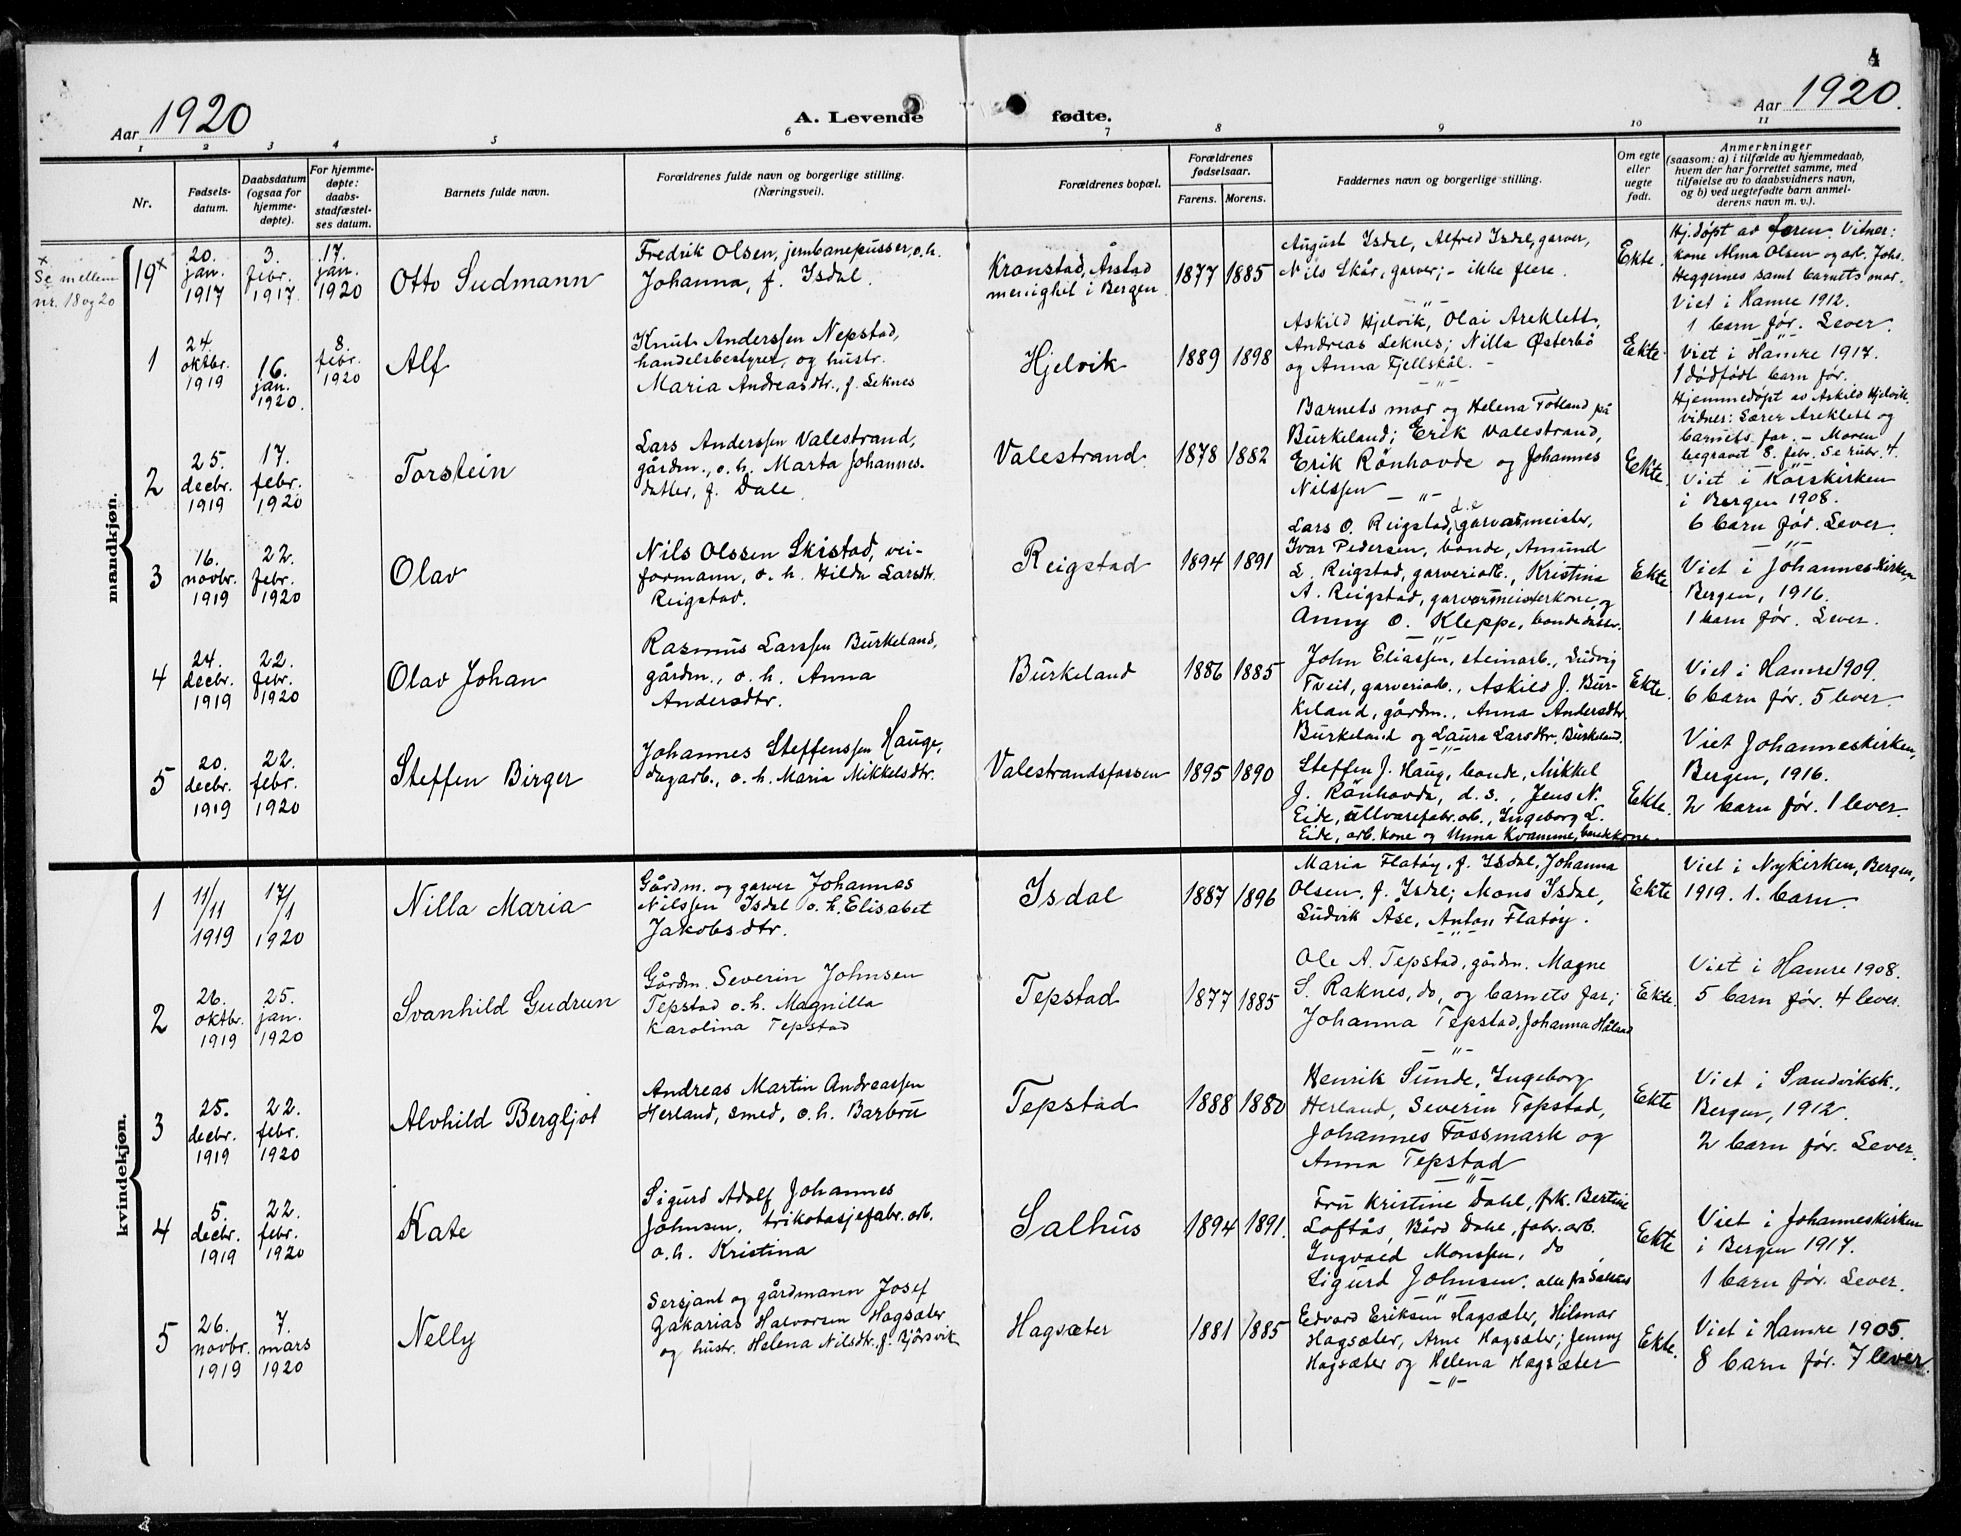 4
Aar 1920
A. Levende fødte.
Aar 1920.
1 2 3 4 5 6 7 8 9 10 11
Nr.
Fødsels-
datum.
Daabsdatum
(ogsaa for
hjemme-
døpte).
For hjemme-
døpte:
daabs-
stadfæstel-
ses datum.
Barnets fulde navn.
Forældrenes fulde navn og borgerlige stilling.
(Næringsvei).
Forældrenes bopæl.
Forældrenes
fødselsaar.
Farens. Morens.
Faddernes navn og borgerlige stilling.
Om egte
eller
uegte
født.
Anmerkninger
(saasom: a) i tilfælde av hjemmedaab,
hvem der har forrettet samme, med
tilføielse av to daabsvidners navn,
og b) ved uegtefødte barn anmel-
derens navn m. v.).
mandkjøn.
x
Se mellem
nr. 18 og 20
19x
20.
jan.
1917
3.
febr.
1917.
17.
jan.
1920
Otto Sudmann
Fredrik Olsen, jernbanepusser, o. h.
Johanna, f. Isdal.
Kronstad, Årstad
menighet i Bergen
1877 1885
August Isdal, Alfred Isdal, garver,
Nils Skår, garver; - ikke flere.
- " -
Ekte.
Hj.døpt av faren. Vitner:
kone Alma Olsen og arb. Johs.
Heggernes samt barnets mor.
Viet i Hamre 1912.
1 barn før. Lever.
1
24.
oktbr.
1919
16.
jan.
1920.
8.
febr.
1920
Alf
Knut Anderssen Nepstad,
handelsbestyrer, og hustr.
Maria Andreasdtr., f. Leknes
Hjelvik
1889 1898
Askild Hjelvik, Olai Areklett,
Andreas Leknes; Nilla Østerbö
og Anna Fjellskål. -
- " -
Ekte.
Viet i Hamre 1917.
1 dødfødt barn før.
Hjemmedøpt av Askild Hjelvik.
vidner: Lærer Areklett og
barnets far. - Moren
begravet 8. febr. Se rubr. 4.
2
25.
decbr.
1919
17.
febr.
1920
Torstein
Lars Anderssen Valestrand,
gårdm., o. h. Marta Johannes-
datter, f. Dale.
Valestrand.
1878 1882
Barnets mor og Helena Totland på
Burkeland; Erik Valestrand,
Erik Rönhovde og Johannes
Nilssen
- " -
Ekte.
Viet i Korskirken
i Bergen 1908.
6 barn før. Lever.
3
16.
novbr.
1919
22.
febr.
1920
Olav
Nils Olssen Skistad, vei-
formann, o. h. Hilda Larsdtr.
Reigstad.
Reigstad
1894 1891
Lars O. Reigstad, garvermeister,
Ivar Pedersen, bonde, Amund
L. Reigstad, garveriarb., Kristina
A. Reigstad, garvermeisterkone, og
Anny O. Kleppe, bondedatter.
- " -
Ekte
Viet i Johanneskirken
Bergen, 1916.
1 barn før. Lever.
4
24.
decbr.
1919
22.
febr.
1920
Olav Johan
Rasmus Larssen Burkeland,
gårdm., o. h. Anna
Andersdtr.
Burkeland
1886 1885
John Eliassen, steinarb., Ludvig
Tveit, garveriarb., Askild J. Bur-
keland, gårdm., Anna Andersdtr.
Burkeland og Laura Larsdtr. Burkeland.
- " -
Ekte.
Viet i Hamre 1909.
6 barn før. 5 lever.
5
20.
decbr.
1919
22.
febr.
1920
Steffen Birger
Johannes Steffenssen Hauge,
dagarb., o. h. Maria Mikkelsdtr.
Valestrandsfossen
1895 1890
Steffen J. Haug, bonde, Mikkel
J. Rönhovde, d. s., Jens N.
Eide, ullvarefabr.arb., Ingeborg L.
Eide, arb.kone og Unna Kvamme, bondekone.
Ekte.
Viet Johanneskirken,
Bergen, 1916.
2 barn før. 1 lever.
kvindekjøn.
1
11/11
1919
17/1
1920
Nilla Maria
Gårdm. og garver Johannes
Nilssen Isdal o. h. Elisabet
Jakobsdtr.
Isdal
1887 1896
Maria Flatøy, f. Isdal, Johanna
Olsen, f. Isdal; Mons Isdal,
Ludvik Åse, Anton Flatøy.
- " -
Ekte
Viet i Nykirken, Bergen,
1919. 1. barn.
2
26.
oktbr.
1919
25.
jan.
1920
Svanhild Gudrun
Gårdm. Severin Johnsen
Tepstad o. h. Magnilla
Karolina Tepstad
Tepstad
1877 1885
Ole A. Tepstad, gårdm. Magne
S. Raknes, do, og barnets far;
Johanna Tepstad, Johanna Håland
- " -
Ekte.
Viet i Hamre 1908.
5 barn før. 4 lever.
3
25.
decbr.
1919
22.
febr.
1920
Alvhild Bergljot
Andreas Martin Andreassen
Herland, smed, o. h. Barbru
Tepstad
1888 1880
Henrik Sunde, Ingeborg
Herland, Severin Tepstad,
Johannes Fossmark og
Anna Tepstad
- " -
Ekte
Viet i Sandviksk.,
Bergen, 1912.
2 barn før. Lever.
4
5.
decbr.
1919
22.
febr.
1920
Kate
Sigurd Adolf Johannes
Johnsen, trikotasjefabr.arb.
o. h. Kristina
Salhus
1894 1891.
Fru Kristine Dahl, frk. Bertine
Loftås, Bård Dahl, fabr.arb.
Ingvald Monssen, do
Sigurd Johnsen. alle fra Salhus
- " -
Ekte
Viet i Johanneskirken
i Bergen 1917.
1 barn før. Lever.
5
26.
novbr.
1919
7.
mars
1920
Nelly
Sersjant og gårdmann Josef
Zakarias Halvorsen Hagsæter
og hustr. Helena Nilsdtr. f. Bjørsvik
Hagsæter
1881 1885
Edvard Eriksen Hagsæter, Hilmar
Hagsæter, Arne Hagsæter; Jenny
Hagsæter og Helena Hagsæter
- " -
Ekte.
Viet i Hamre 1905.
8 barn før. 7 lever.